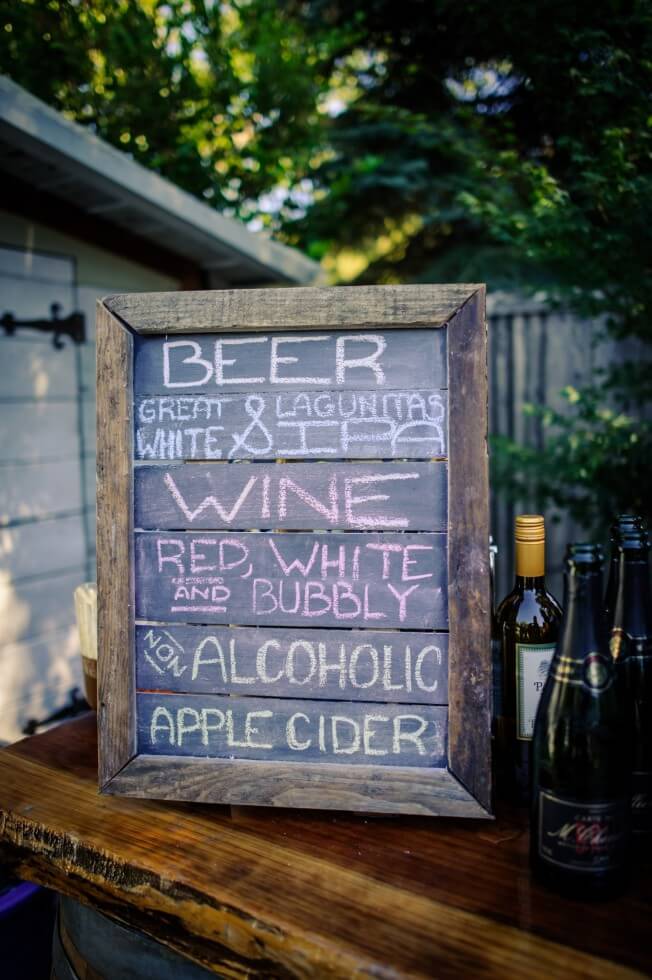 BEER
GREAT WHITE & LAGUNITAS IPA
WINE
RED, WHITE
AND BUBBLY
NON ALCOHOLIC
APPLE CIDER